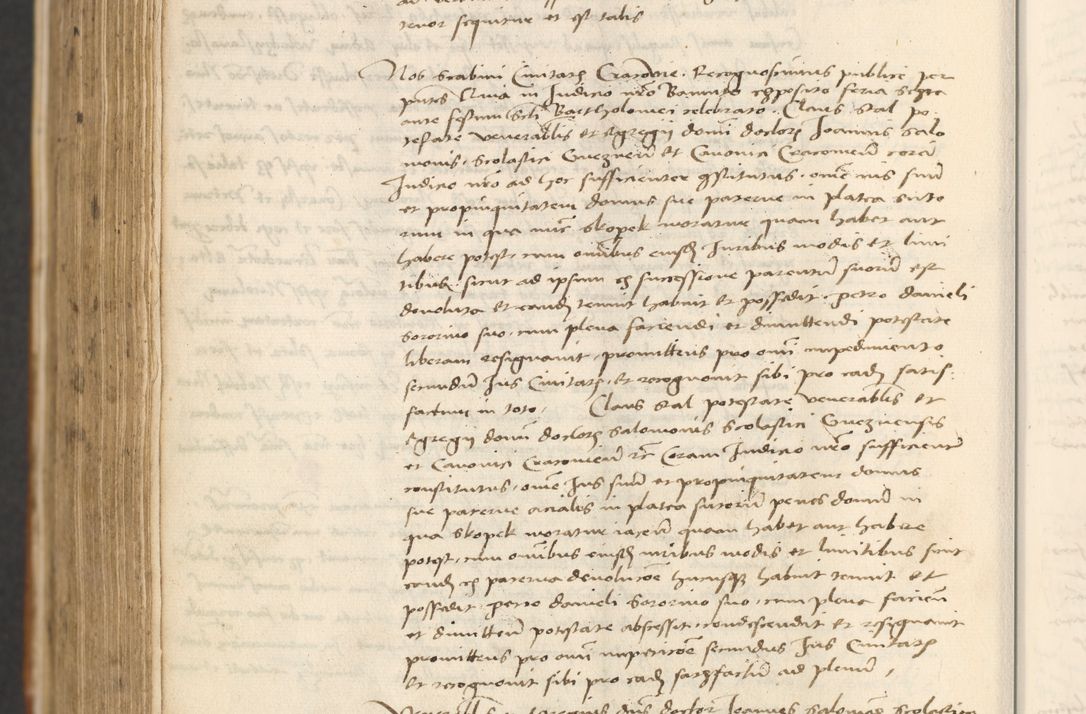 tenor sequitur et est talis
Nos Scabini Civitatis Cracovie. Recognoscimus publice per
pntes Quia in Iudicio nro Bannito exposito feria sexta
ante festum Scti Bartholomei celebrato. Claus Stal po
testate venerablis et Egregii domi doctoris Ioannis Salo
monis, Scolastici Gneznen et Canonici Cracovien coram
Iudicio nro ad hoc sufficienter constitutus, omne ius suum
et propinquitatem domus sue paterne in platea Suto
rum in qua nunc Skopek moratur quam habet aut
habere potest, cum omnibus eiusdem Iuribus modis et limi
tibus, sicut ad ipsum ex successione parentum suorum est
devoluta et eandem tenuit habuit et possedit, Petro Danieli
Sororino suo, cum plena faciendi et dimittendi potestate
liberam resignavit, promittens pro omni impedimento
secundum Ius Civitatis, et recognovit sibi pro eadem satis-
factum in toto, Claus Stal potestate venerablis et
Egregii domini doctoris Salomonis Scolastici Gneznensis
et Canonici Cracovien etc Coram Iudicio nro sufficienter
constitutus, omne Ius suum et propinquitatem domus
sue paterne acialis in platea Sutorum penes domum in
qua Skopek moratur iacen quam habet aut habere
potest, cum omnibus eiusdem iuribus modis et limitibus sicut
eandem ex paterna devolucione hucusque habuit tenuit et
possedit, Petro Danieli Sororino suo, cum plena facien
et dimitten potestate abscessit, condescendit et resignavit
promittens pro omni impeticione secundum Ius Civitatis
et recognovit sibi pro eadem satisfactum ad plenum,
doctor Ioannes Salomon Scolasticus